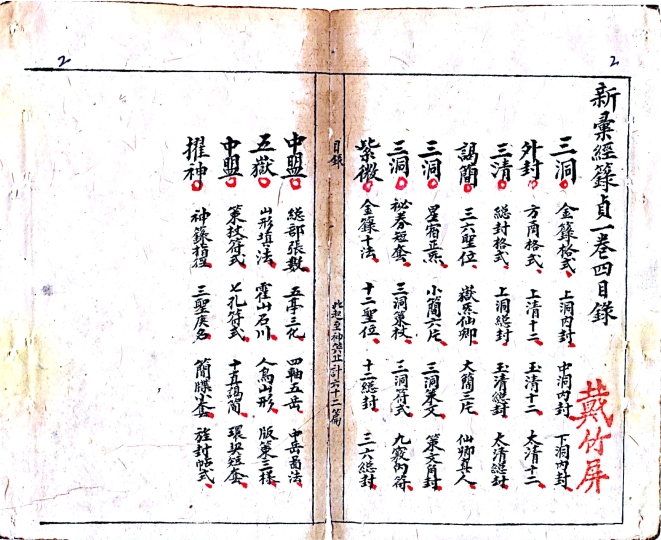 新彙經籙貞一卷四目錄
三洞 金籙格式 上洞內封 中洞內封 下洞內封
外封 方角格式 上清十二 玉清十二 太清十二
三清 總封格式 上洞總封 玉清總封 太清總封
謁簡 三六聖位 嶽炁仙卿 大簡三片 仙卿真人
三洞 星宿正炁 小簡六片 三洞策文 策文角封
三洞 秘券短套 三洞策杖 三洞符式 九竅內符
紫微 金籙十法 十二聖位 十二總封 三六總封
戴竹屏
目錄
此起至神策止計六十二篇
中盟 總部張數 五亭三化 四軸五岳 中岳番法
五嶽 山形填法 霍山石川 人鳥山形 版策三樣
中盟 策杖符式 七孔符式 十直謁簡 環與短套
擢神 神籙指程 三聖疾名 簡牒小套 旌封帖式
2
2